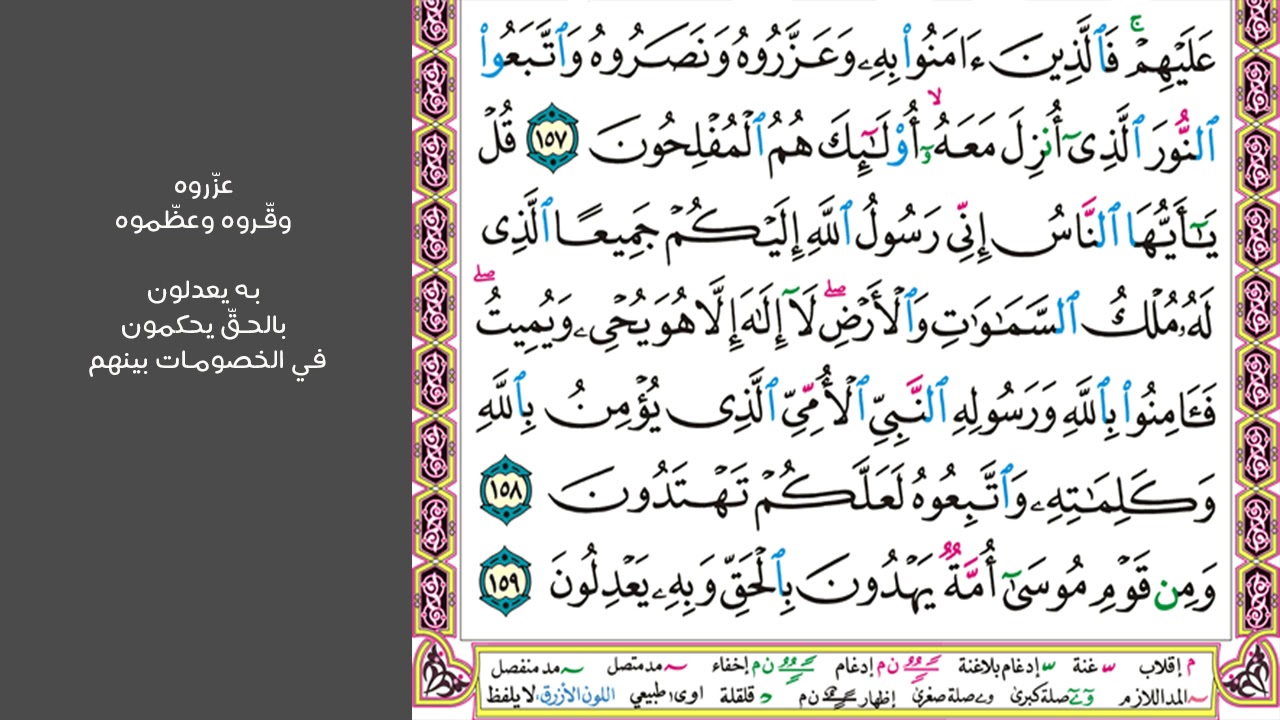 عَلَيْهِمْ ۚ فَٱلَّذِينَ ءَامَنُوا۟ بِهِۦ وَعَزَّرُوهُ وَنَصَرُوهُ وَٱتَّبَعُوا۟
ٱلنُّورَ ٱلَّذِىٓ أُنزِلَ مَعَهُۥٓ ۙ أُو۟لَـٰٓئِكَ هُمُ ٱلْمُفْلِحُونَ ١٥٧ قُلْ
يَـٰٓأَيُّهَا ٱلنَّاسُ إِنِّى رَسُولُ ٱللَّهِ إِلَيْكُمْ جَمِيعًا ٱلَّذِى
لَهُۥ مُلْكُ ٱلسَّمَـٰوَٰتِ وَٱلْأَرْضِ ۖ لَآ إِلَـٰهَ إِلَّا هُوَ يُحْىِۦ وَيُمِيتُ ۖ
فَـَٔامِنُوا۟ بِٱللَّهِ وَرَسُولِهِ ٱلنَّبِىِّ ٱلْأُمِّىِّ ٱلَّذِى يُؤْمِنُ بِٱللَّهِ
وَكَلِمَـٰتِهِۦ وَٱتَّبِعُوهُ لَعَلَّكُمْ تَهْتَدُونَ ١٥٨
وَمِن قَوْمِ مُوسَىٰٓ أُمَّةٌ يَهْدُونَ بِٱلْحَقِّ وَبِهِۦ يَعْدِلُونَ ١٥٩
م إقلاب س غنة س إدغام بلاغنة ن م إدغام ن م إخفاء مد متصل مد منفصل
المد اللازم صلة كبرى صلة صغرى إظهار ن م قلقلة اوى طبيعي اللون الأزرق لا يلفظ
عزّروه
وقّروه وعظّموه
به يعدلون
بالحقّ يحكمون
في الخصومات بينهم